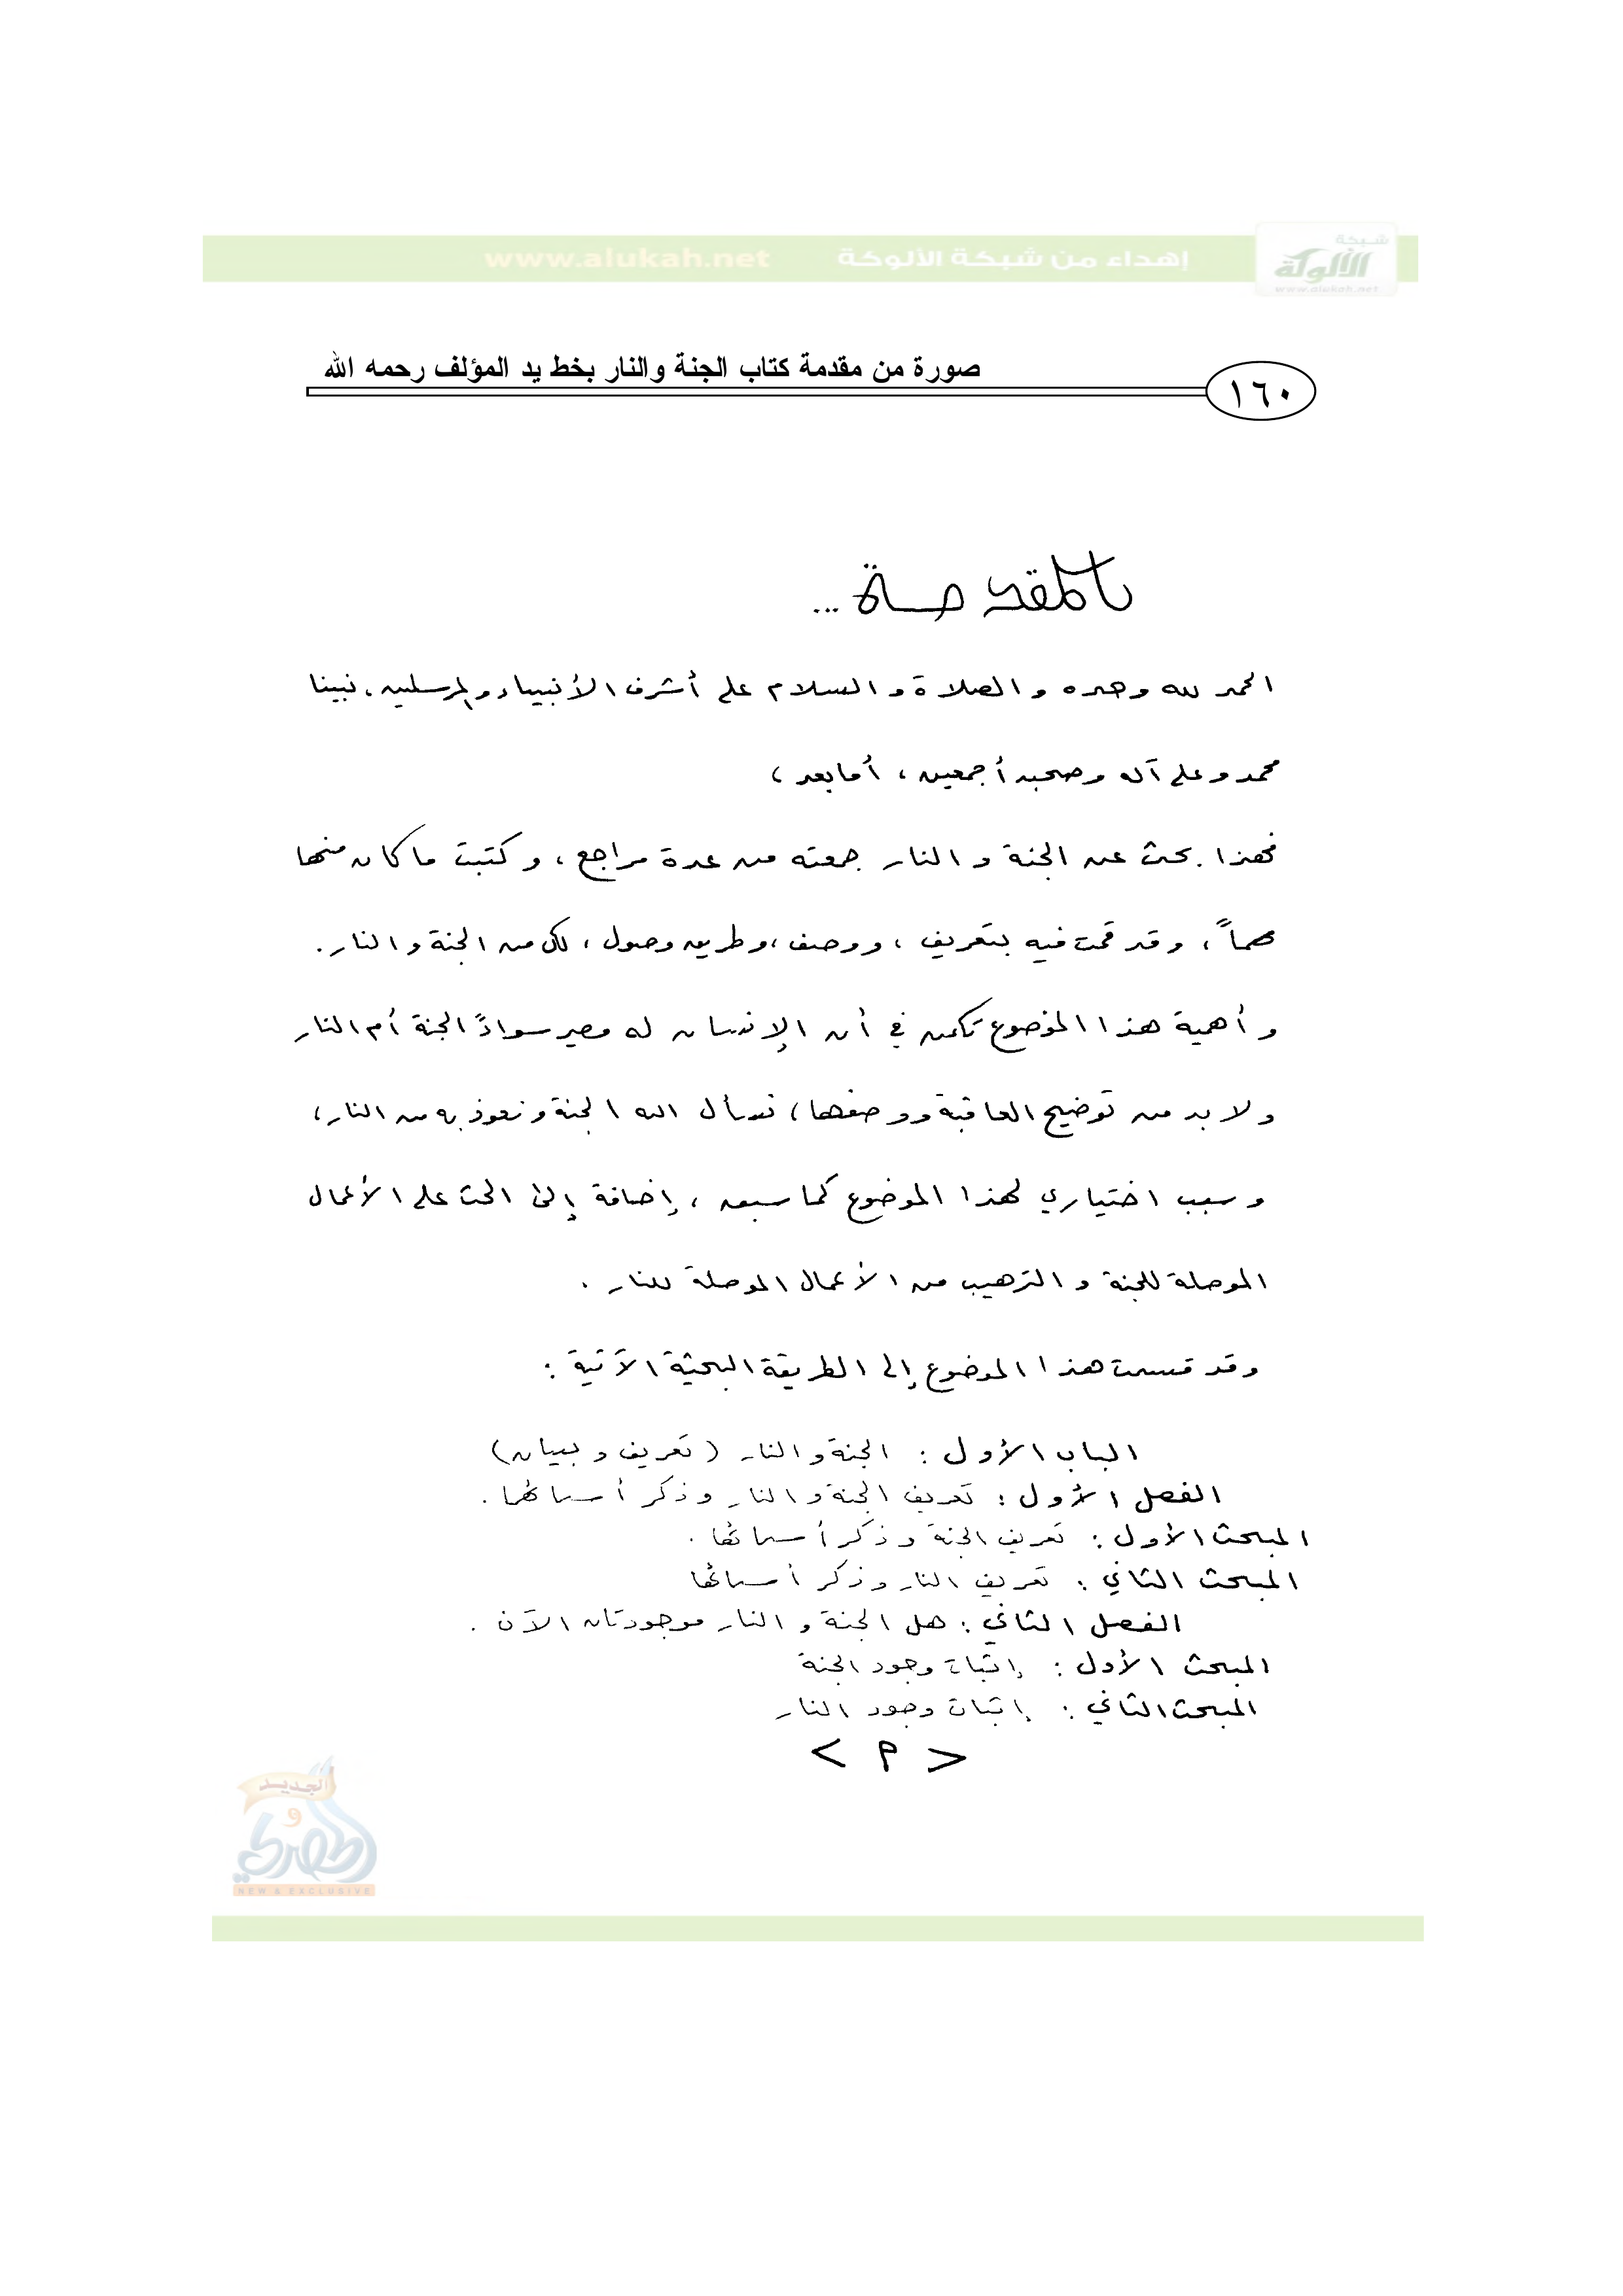 شبكة
الألوكة
www.alukah.net
إهداء من شبكة الألوكة www.alukah.net
١٦٠
صورة من مقدمة كتاب الجنة والنار بخط يد المؤلف رحمه الله
المقدمة ...
الحمد لله وحده والصلاة والسلام على أشرف الأنبياء والمرسلين، نبينا
محمد وعلى آله وصحبه أجمعين، أما بعد،
فهذا بحث عن الجنة والنار جمعته من عدة مراجع، وكتبت ما كان منها
مهماً، وقد قمت فيه بتعريف، ووصف، وطريق وصول، لكل من الجنة والنار.
وأهمية هذا الموضوع تكمن في أن الإنسان له مصير سواءً الجنة أم النار
ولا بد من توضيح العاقبة ووصفها، نسأل الله الجنة ونعوذ به من النار،
وسبب اختياري لهذا الموضوع كما سبق، إضافة إلى الحث على الأعمال
الموصلة للجنة والترهيب من الأعمال الموصلة للنار.
وقد قسمت هذا الموضوع إلى الطريقة البحثية الآتية:
الباب الأول: الجنة والنار (تعريف وبيان)
الفصل الأول: تعريف الجنة والنار وذكر أسمائهما.
المبحث الأول: تعريف الجنة وذكر أسمائها.
المبحث الثاني: تعريف النار وذكر أسمائها
الفصل الثاني: هل الجنة والنار موجودتان الآن.
المبحث الأول: إثبات وجود الجنة
المبحث الثاني: إثبات وجود النار
< م >
الجديد
و
الحصري
NEW & EXCLUSIVE